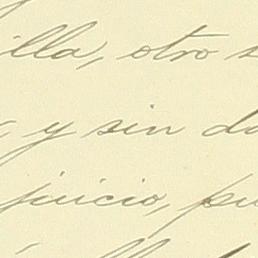 illa, otro s
y sin da
juicio, pu